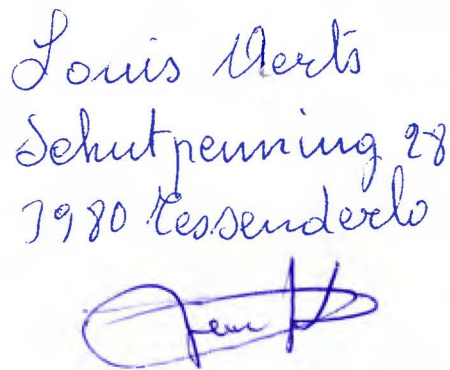 Louis Aerts
Schutpenning 28
3980 Tessenderlo